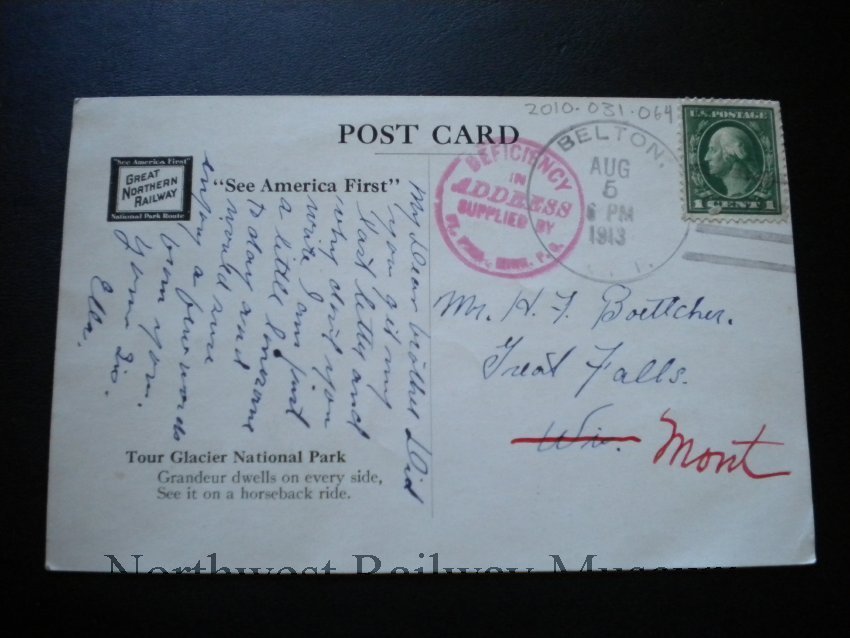 2010·031·064
POST CARD
"See America First"
GREAT
NORTHERN
RAILWAY
National Park Route
"See America First"
My Dear brother Did
you git my
last letty and
why don't you
write I am just
a little lonesome
to day and
would sure
enjoy a few words
from you.
Your Sis.
Ella.
Tour Glacier National Park
Grandeur dwells on every side,
See it on a horseback ride.
DEFICIENCY
IN
ADDRESS
SUPPLIED BY
BELTON,
AUG
5
6 PM
1913
U.S. POSTAGE
1 CENT 1
Mr. H. F. Boettcher.
Great Falls.
Wis. Mont
Northwest Railway Museum